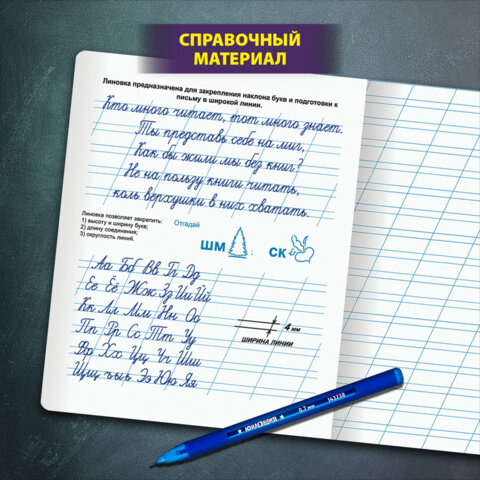 СПРАВОЧНЫЙ
МАТЕРИАЛ
Линовка предназначена для закрепления наклона букв и подготовки к
письму в широкой линии.
Кто много читает, тот много знает.
Ты представь себе на миг,
Как бы жили мы без книг?
Не на пользу книги читать,
коль верхушки в них хватать.
Линовка позволяет закрепить:
1) высоту и ширину букв;
2) длину соединения;
3) округлость линий.
Отгадай
ШМ
СК
Аа Бб Вв Гг Дд
Ее Ёё Жж Зз Ии Йй
Кк Лл Мм Нн Оо
Пп Рр Сс Тт Уу
Фф Хх Цц Чч Шш
Щщ ъыь Ээ Юю Яя
4 мм
ШИРИНА ЛИНИИ
ЮНЛАНДИЯ 0,7 мм 143238